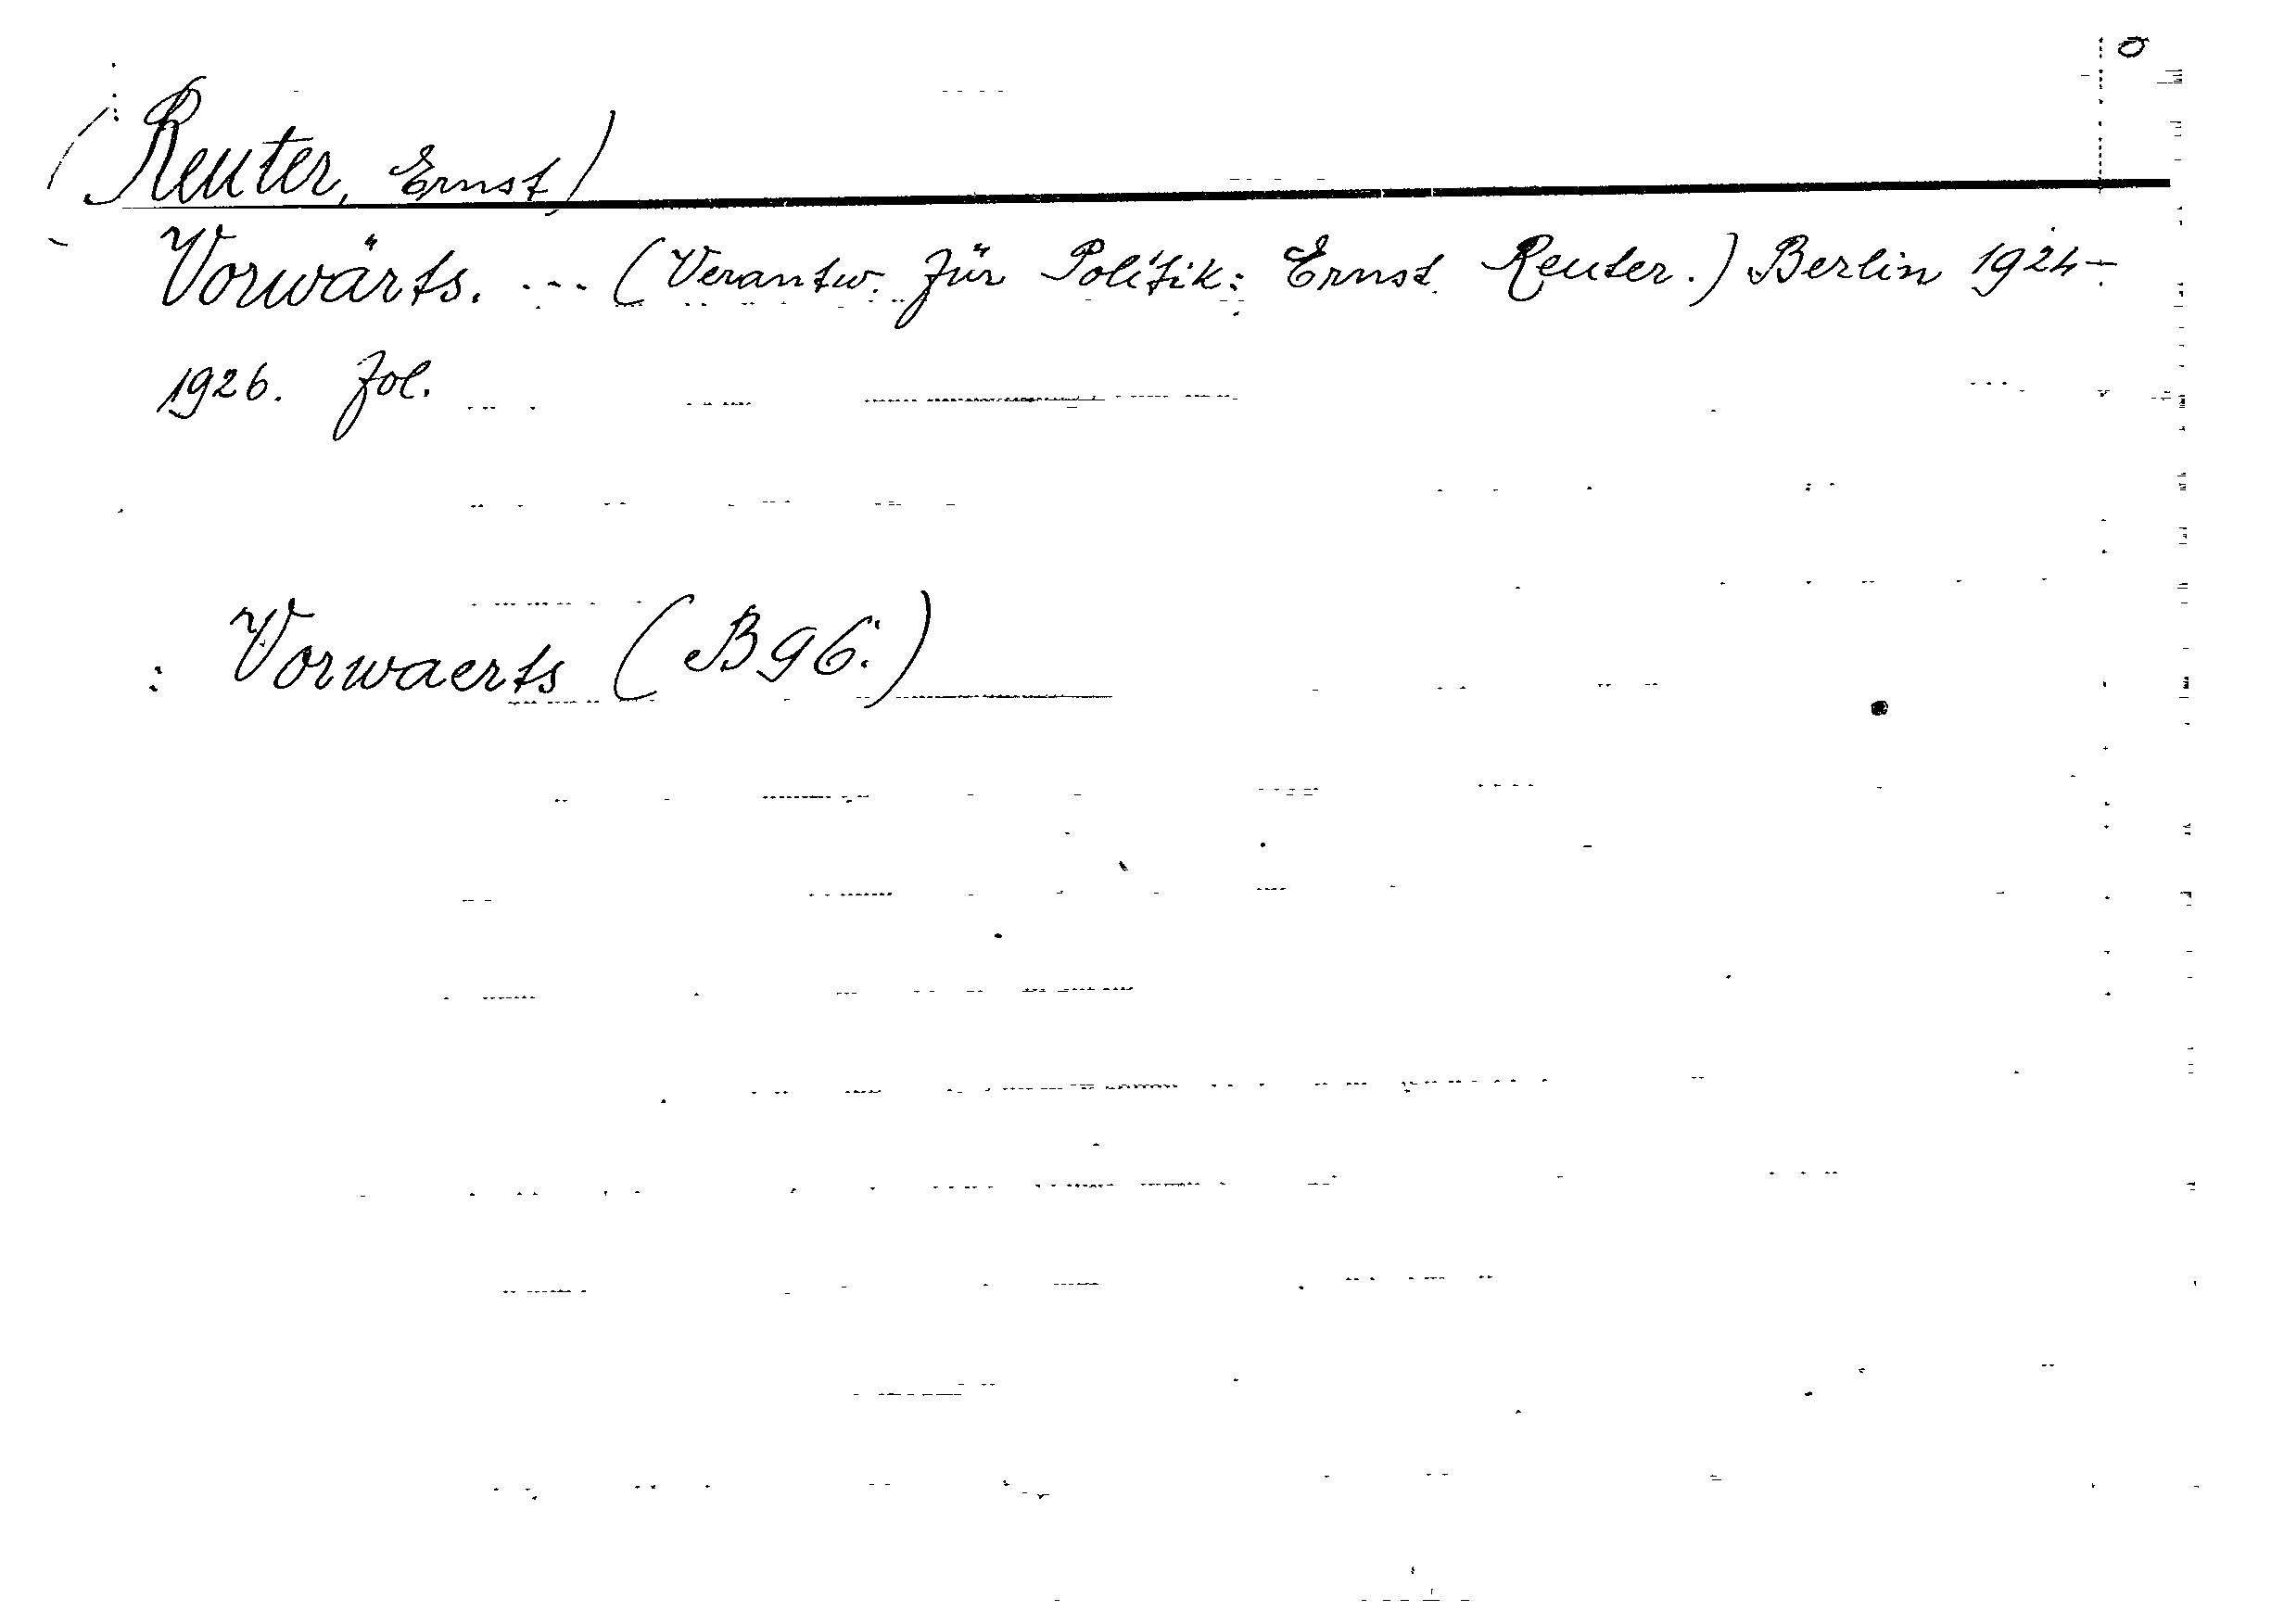 (Reuter, Ernst)
Vorwärts. ... (Verantw. für Politik: Ernst Reuter.) Berlin 1924-
1926. fol.
: Vorwaerts (B96.)